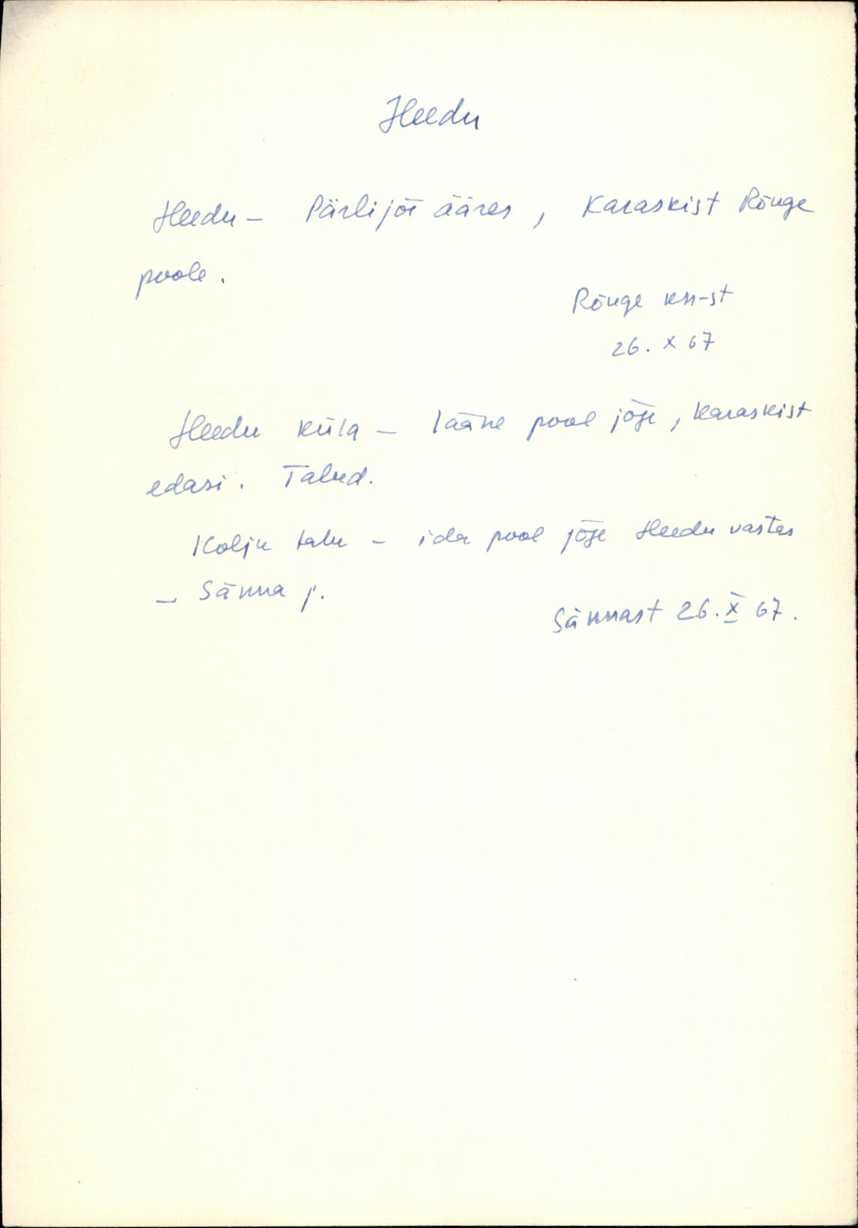 Heedu
Heedu – Pärlijõe ääres, Karaskist Rõuge
poole.
Rõuge kn-st
26. X 67
Heedu küla – lääne pool jõge, Karaskist
edasi. Talud.
Kolju talu – ida pool jõge Heedu vastas
– Sänna j.
Sännast 26. X 67.